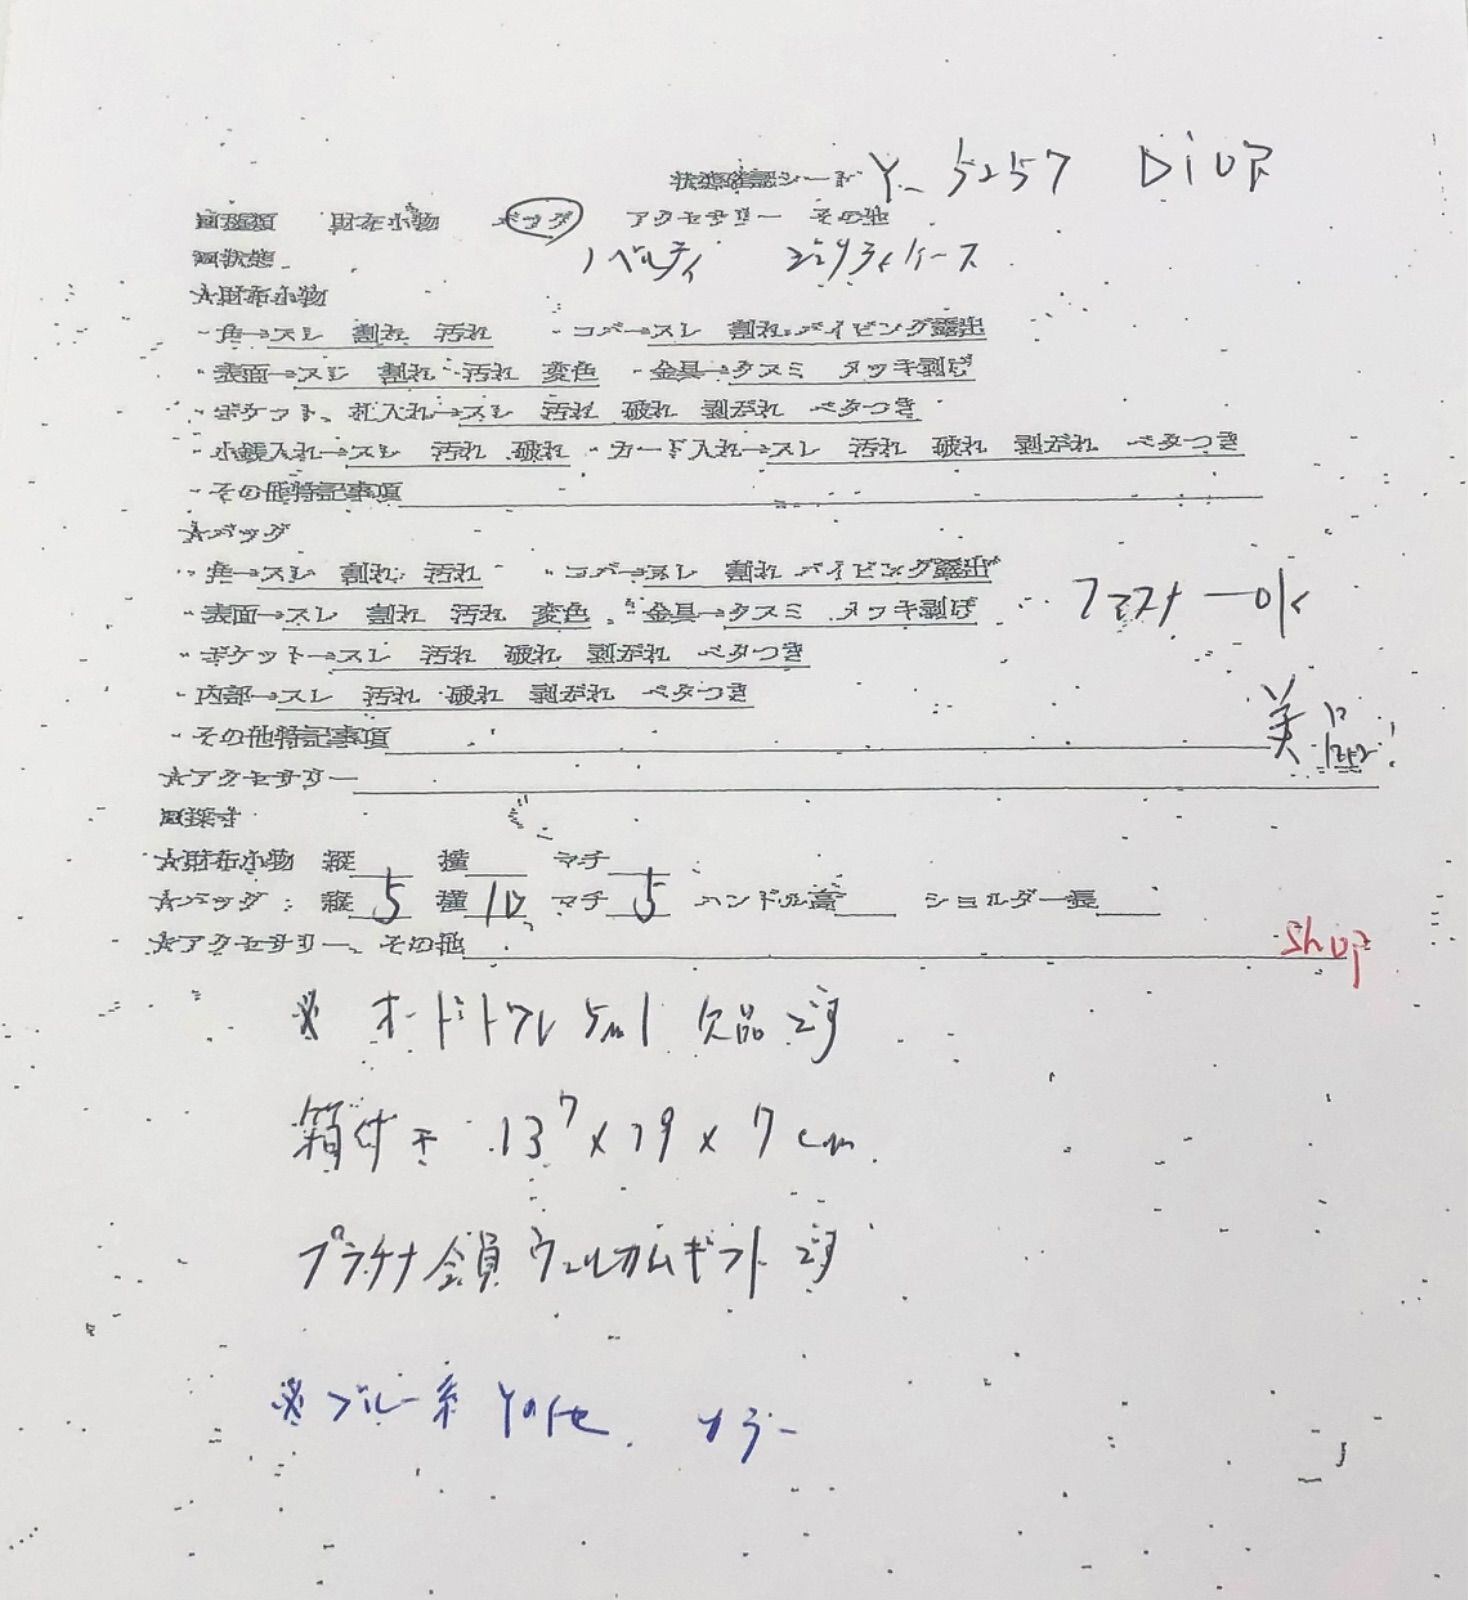 状態確認シート Y-5257 Dior
回種類 財布小物 バッグ アクセサリー その他
回状態 ノベルティ ミニバニティケース
☆財布小物
・角→スレ 割れ 汚れ ・コバ→スレ 割れ パイピング露出
・表面→スレ 割れ 汚れ 変色 ・金具→クスミ メッキ剥げ
・ポケット、札入れ→スレ 汚れ 破れ 剥がれ ベタつき
・小銭入れ→スレ 汚れ 破れ ・カード入れ→スレ 汚れ 破れ 剥がれ ベタつき
・その他特記事項
☆バッグ
・角→スレ 割れ 汚れ ・コバ→スレ 割れ パイピング露出
・表面→スレ 割れ 汚れ 変色 ・金具→クスミ メッキ剥げ ファスナーOK
・ポケット→スレ 汚れ 破れ 剥がれ ベタつき
・内部→スレ 汚れ 破れ 剥がれ ベタつき
・その他特記事項 美品!
☆アクセサリー
回採寸
☆財布小物 縦 横 マチ
☆バッグ: 縦5 横10 マチ5 ハンドル高 ショルダー長
☆アクセサリー、その他 shop
※ オードトワレ 5ml 欠品です
箱付き 13 7×19×7cm
プラチナ会員 ウェルカムギフトです
※ブルー系